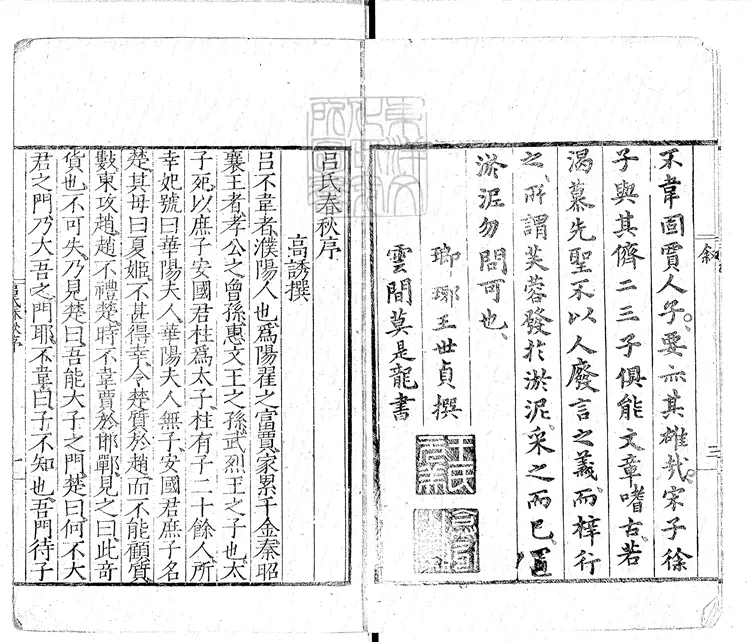 不韋固賈人子要亦其雄哉宋子徐
子與其儕二三子俱能文章嗜古若
渴慕先聖不以人廢言之義而梓行
之所謂芙蓉發於淤泥采之而已置
淤泥勿問可也
瑯琊王世貞撰
雲間莫是龍書
敘
三
呂氏春秋序
高誘撰
呂不韋者濮陽人也爲陽翟之富賈家累千金秦昭
襄王者孝公之曾孫惠文王之孫武烈王之子也太
子死以庶子安國君柱爲太子柱有子二十餘人所
幸妃號曰華陽夫人華陽夫人無子安國君庶子名
楚其母曰夏姬不甚得幸令楚質於趙而不能顧質
數東攻趙趙不禮楚時不韋賈於邯鄲見之曰此奇
貨也不可失乃見楚曰吾能大子之門楚曰何不大
君之門乃大吾之門耶不韋曰子不知也吾門待子
呂氏春秋序
一